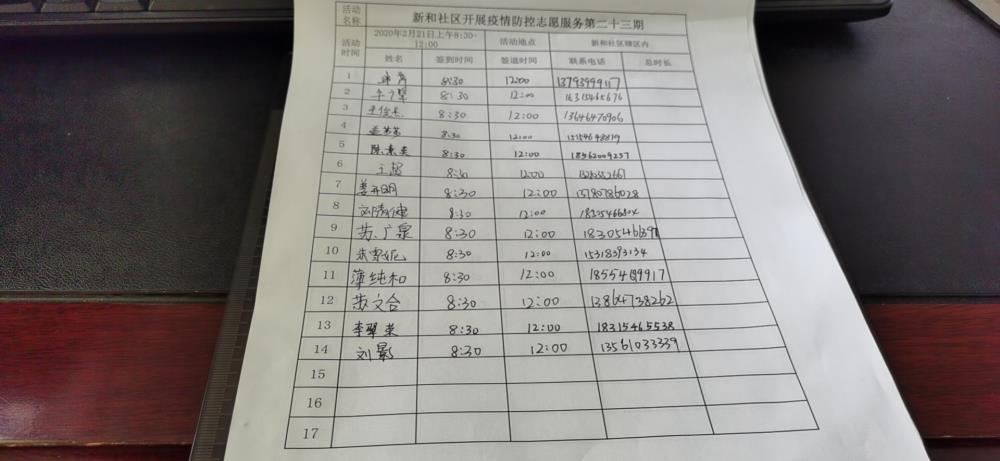 活动名称 新和社区开展疫情防控志愿服务第二十三期
活动时间 2020年2月21日上午8:30-12:00 活动地点 新和社区辖区内
姓名 签到时间 签退时间 联系电话 总时长
1 8:30 12:00 13793999117
2 8:30 12:00
3 8:30 12:00 13646470906
4 8:30 12:00
5 8:30 12:00 18562009257
6 王 8:30 12:00
7 姜开明 8:30 12:00 13780786028
8 刘清健 8:30 12:00
9 苏广泉 8:30 12:00
10 8:30 12:00 15318593134
11 薄纯和 8:30 12:00
12 苏文合 8:30 12:00 13864738262
13 李翠荣 8:30 12:00 18315465538
14 刘景 8:30 12:00 13561033339
15
16
17